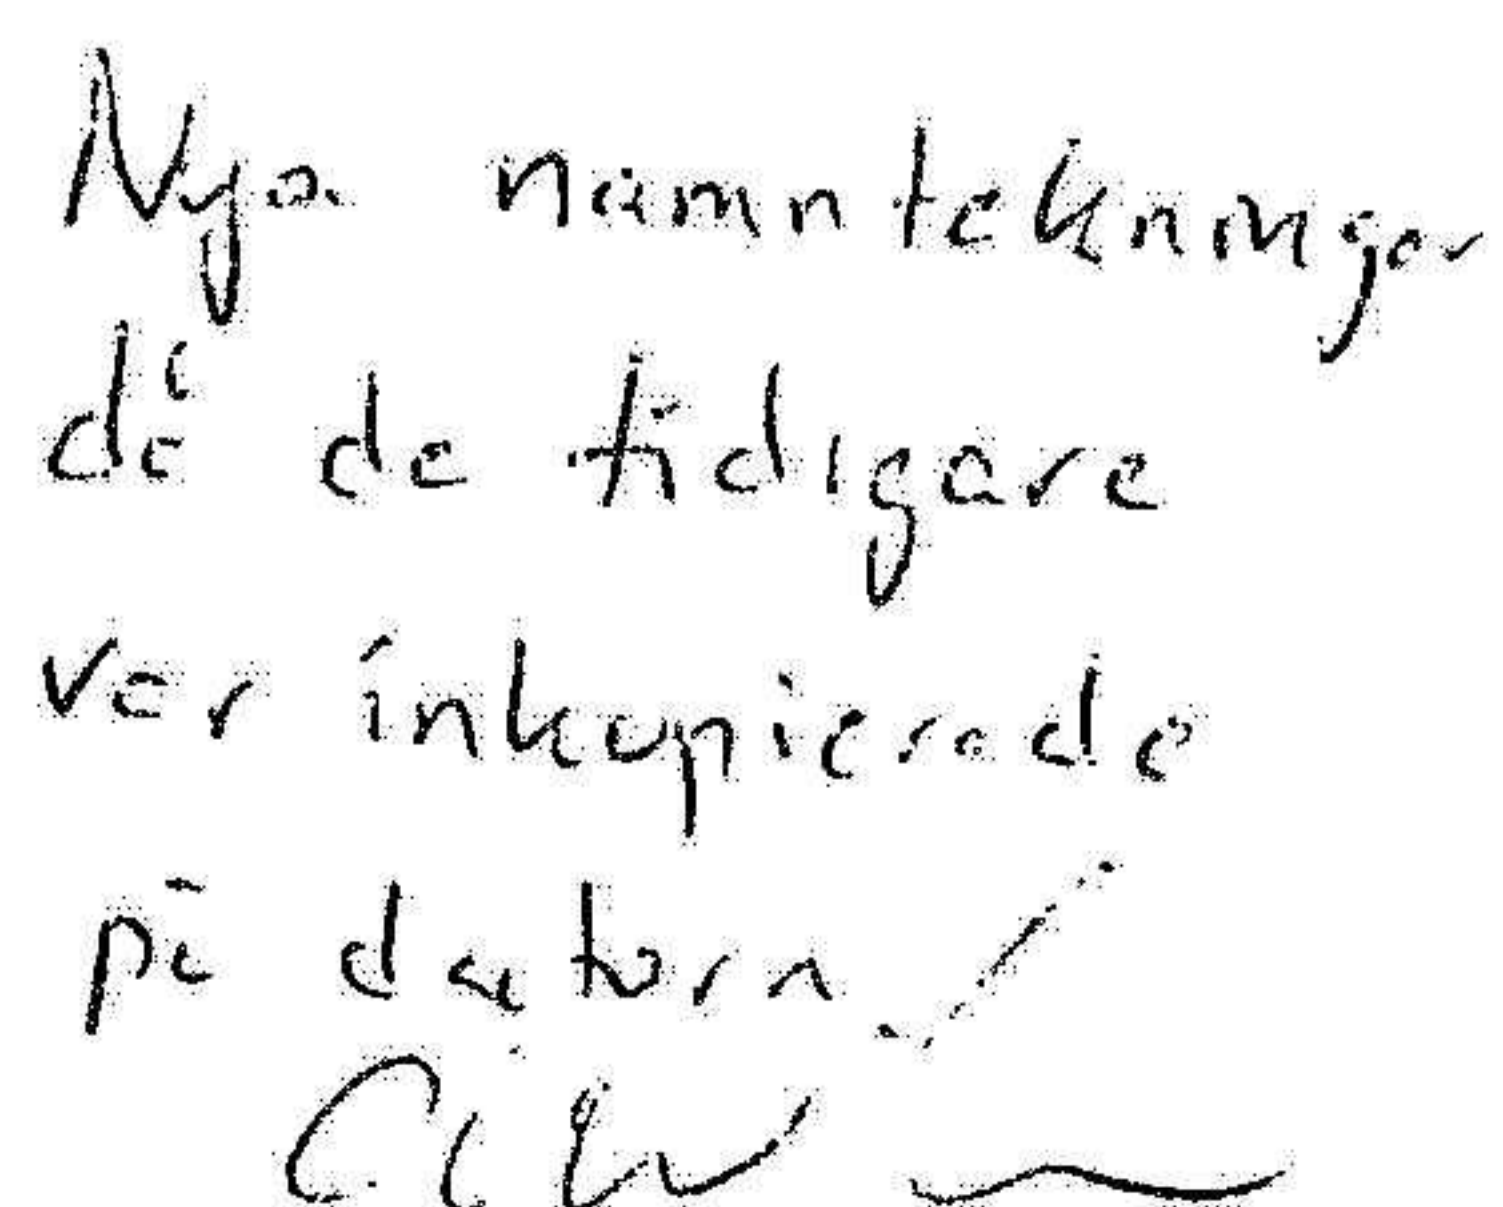 Nya namnteckningar
då de tidigare
var inkopierade
på datorn